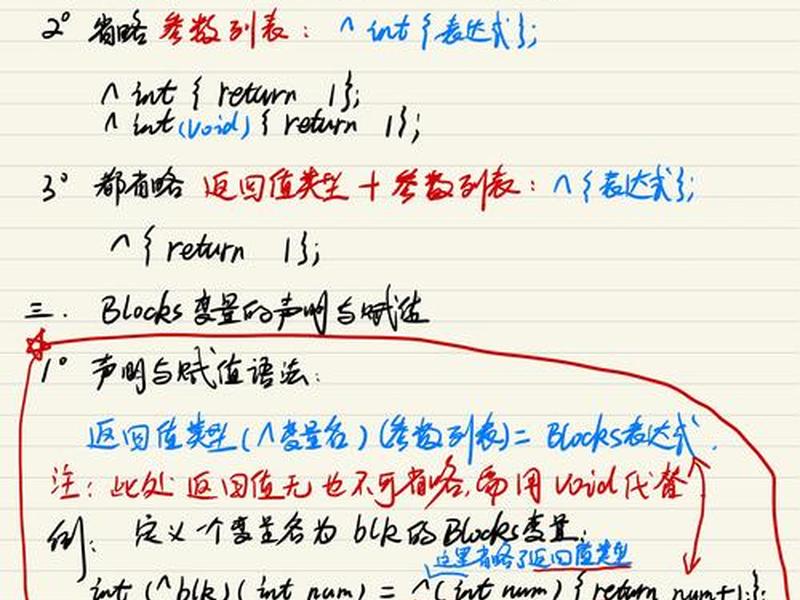 2° 省略 参数列表: ^ int {表达式};
^ int { return 1};
^ int(void) { return 1};
3° 都省略 返回值类型 + 参数列表: ^ {表达式};
^ { return 1};
三. Blocks 变量的声明与赋值
1° 声明与赋值语法:
返回值类型(^变量名)(参数列表)= Blocks表达式.
注: 此处 返回值无也不可省略,需用 void 代替
例: 定义一个变量名为 blk 的Blocks变量:
这里省略了返回值类型
int (^blk)(int num) = ^(int num) {return num+1;};